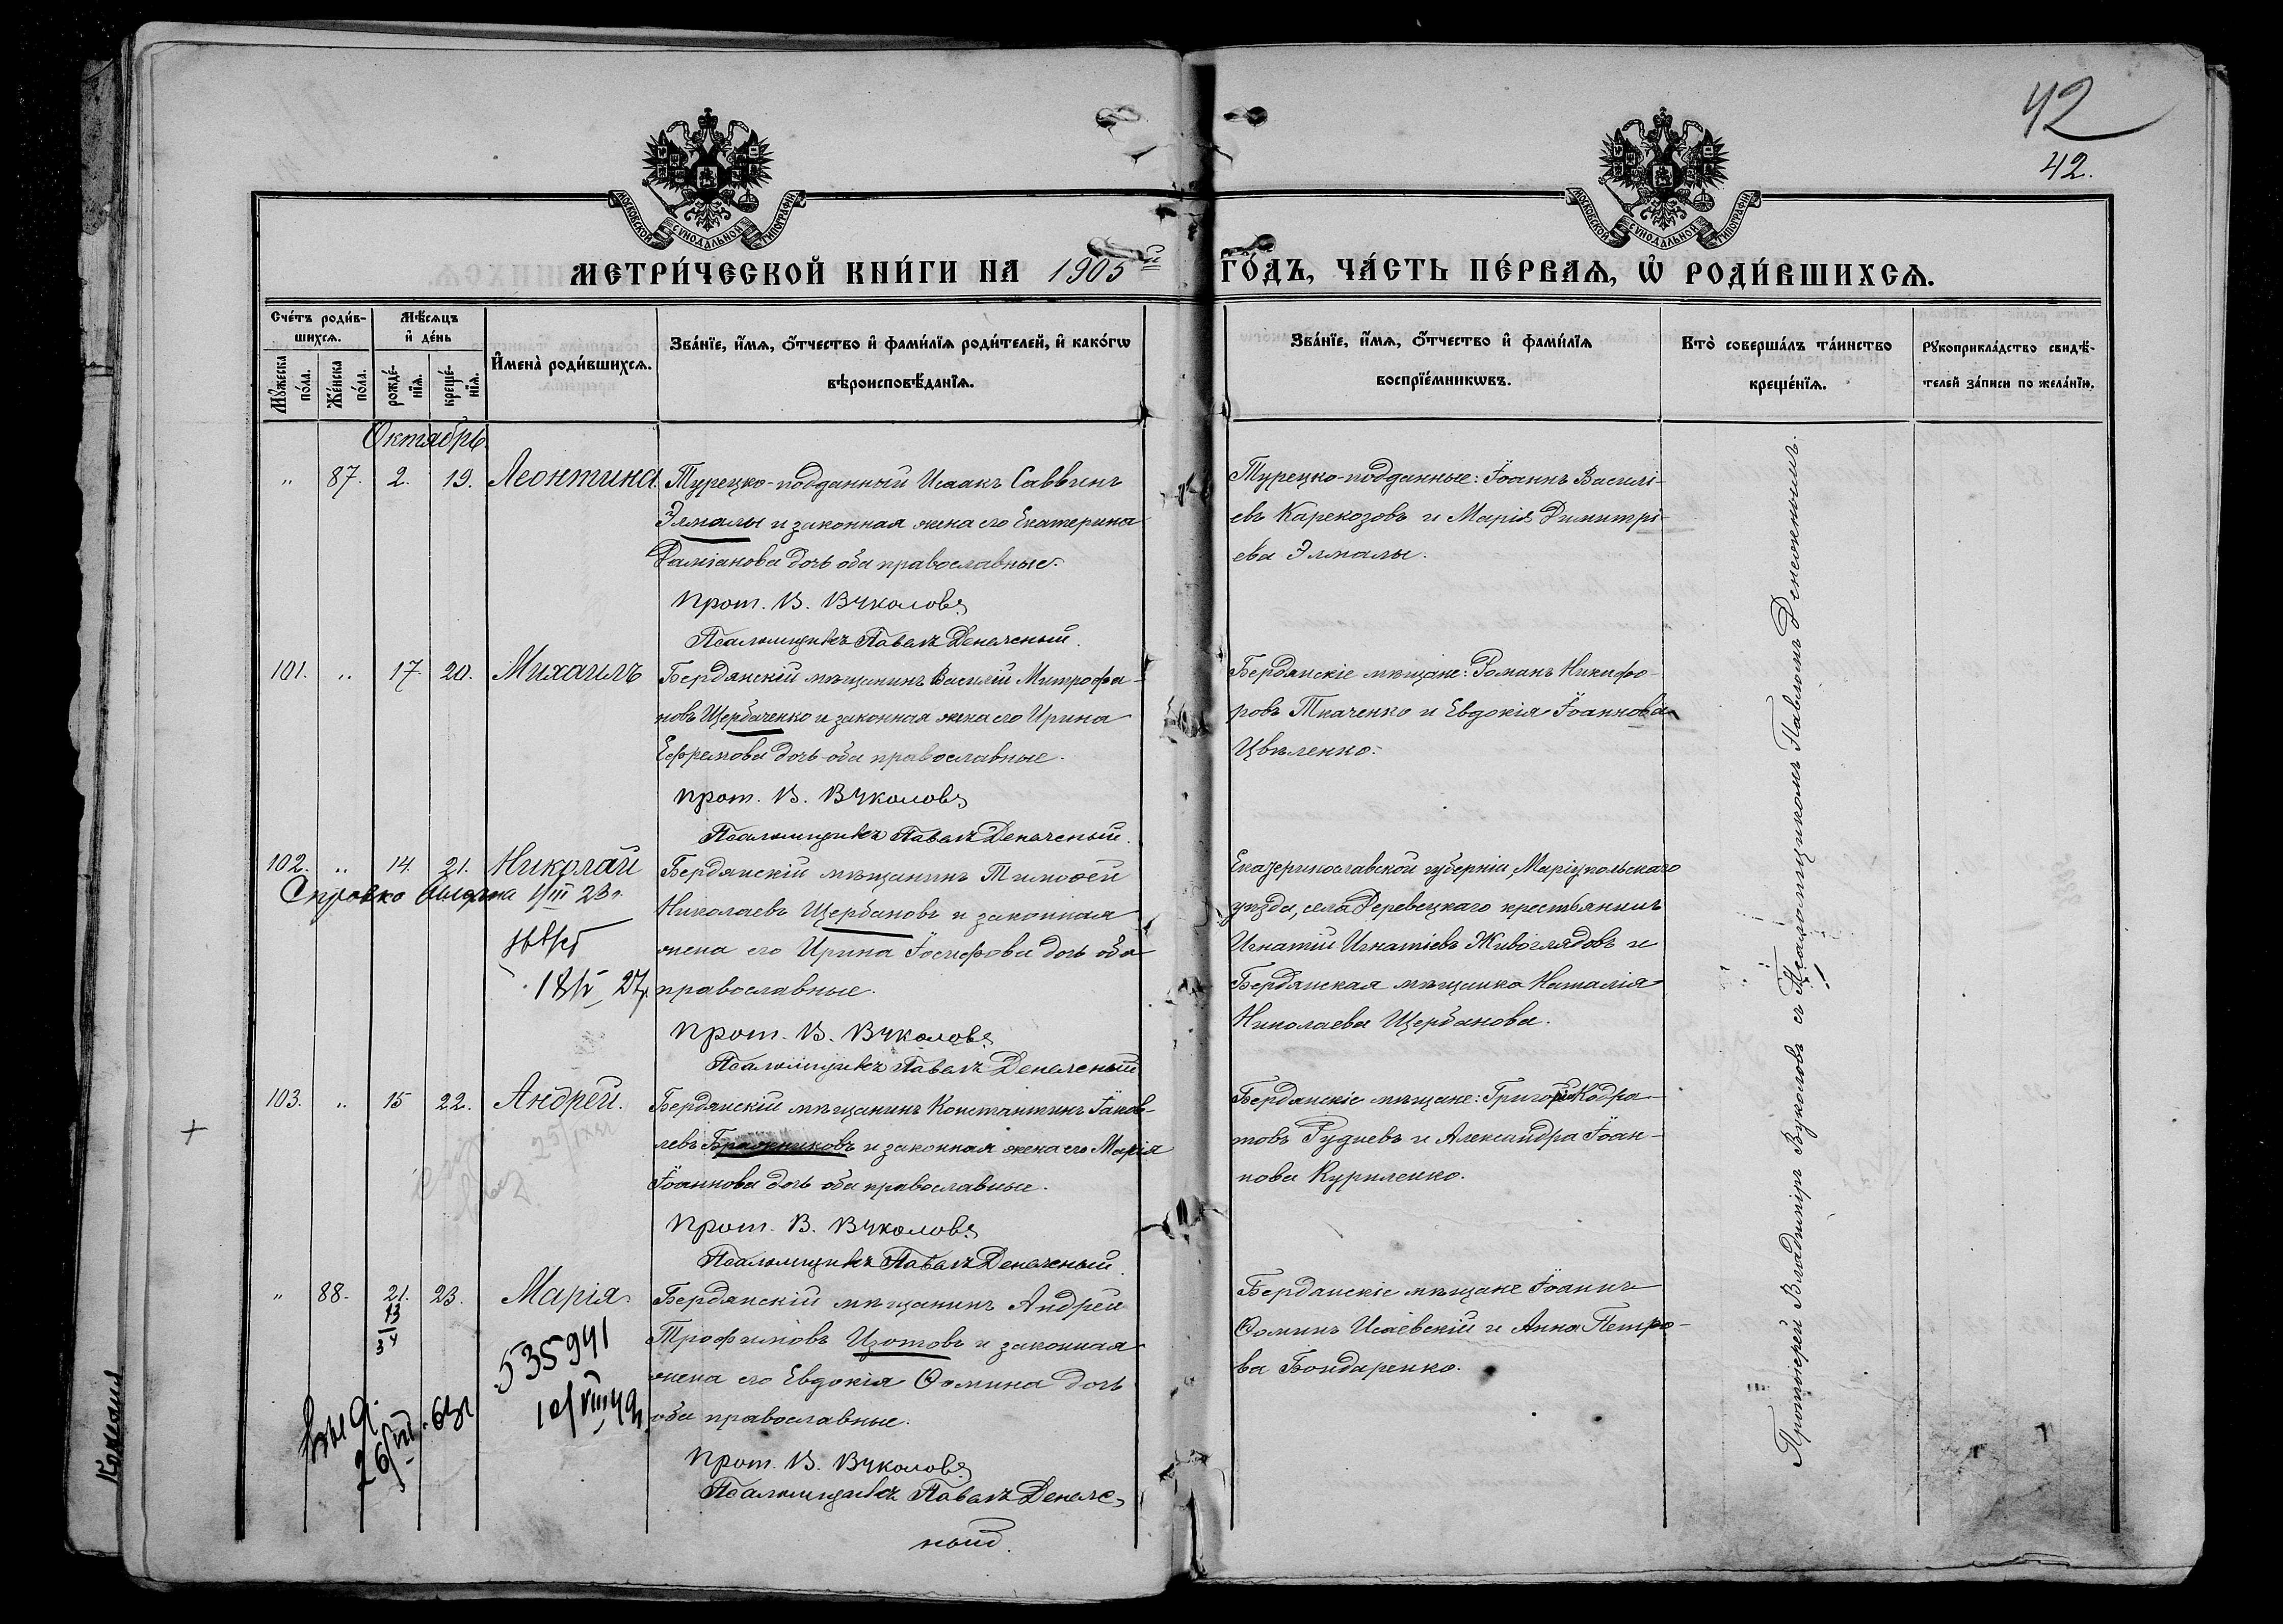 42
42.
МОСКОВСКОЙ СѴНОДАЛЬНОЙ ТИПОГРАФІИ
МОСКОВСКОЙ СѴНОДАЛЬНОЙ ТИПОГРАФІИ
МЕТРИ́ЧЕСКОЙ КНИ́ГИ НА 1905й ГО́ДЪ, ЧА́СТЬ ПЕ́РВАѦ, Ѡ҆ РОДИ́ВШИХСѦ.
Сче́тъ роди́в-
шихсѧ.
Мꙋ́жеска по́ла.
Же́нска по́ла.
Мѣ́сѧцъ
и҆ де́нь
рожде́-
нїѧ.
креще́-
нїѧ.
И҆мена̀ роди́вшихсѧ.
Зва́нїе, и҆́мѧ, ѻ҆́тчество и҆ фами́лїѧ роди́телей, и҆ како́гѡ
вѣроисповѣ́данїѧ.
Зва́нїе, и҆́мѧ, ѻ҆́тчество и҆ фами́лїѧ
воспрїе́мникѡвъ.
Кто̀ соверша́лъ та́инство
креще́нїѧ.
Рꙋкоприкла́дство свидѣ́-
телей за́писи по жела́нїю.
Октябрь.
" 87. 2. 19. Леонтина.
Турецко-подданный Исаакъ Саввинъ
Элмалы и законная жена его Екатерина
Даміанова дочь оба православные.
Прот. В. Вуколовъ
Псаломщикъ Павелъ Денеженый.
Турецко-подданные: Іоаннъ Василі-
евъ Карекозовъ и Марія Димитрі-
ева Элмалы.
101. " 17. 20. Михаилъ
Бердянскій мѣщанинъ Василій Митрофа-
новъ Щербаченко и законная жена его Ирина
Ефремова дочь оба православные.
Прот. В. Вуколовъ
Псаломщикъ Павелъ Денеженый.
Бердянскіе мѣщане: Романъ Никифо-
ровъ Ткаченко и Евдокія Іоаннова
Цвѣленко.
102. " 14. 21. Николай
Справка 1/III 23г.
18/V 27г.
Бердянскій мѣщанинъ Тимоѳей
Николаевъ Щербановъ и законная
жена его Ирина Іосифова дочь оба
православные.
Прот. В. Вуколовъ
Псаломщикъ Павелъ Денеженый
Екатеринославской губерніи, Маріупольскаго
уѣзда, села Деревецкаго крестьянинъ
Игнатій Игнатіевъ Живоглядовъ и
Бердянская мѣщанка Наталія
Николаева Щербанова.
103. " 15 22. Андрей.
+
Бердянскій мѣщанинъ Константинъ Іаков-
левъ Бражниковъ и законная жена его Марія
Іоаннова дочь оба православные.
Прот. В. Вуколовъ
Псаломщикъ Павелъ Денеженый.
Бердянскіе мѣщане: Григорій Кодра-
товъ Рудневъ и Александра Іоан-
нова Куриленко.
" 88. 21. 23. Марія.
13
34
535941
Бердянскій мѣщанинъ Андрей
Трофимовъ Изотовъ и законная
жена его Евдокія Ѳомина дочь
оба православные.
Прот. В. Вуколовъ
Псаломщикъ Павелъ Денеже-
ный.
Бердянскіе мѣщане Іоаннъ
Ѳоминъ Исаевскій и Анна Петро-
ва Бондаренко.
Протоіерей Владиміръ Вуколовъ съ Псаломщикомъ Павломъ Денеженымъ.